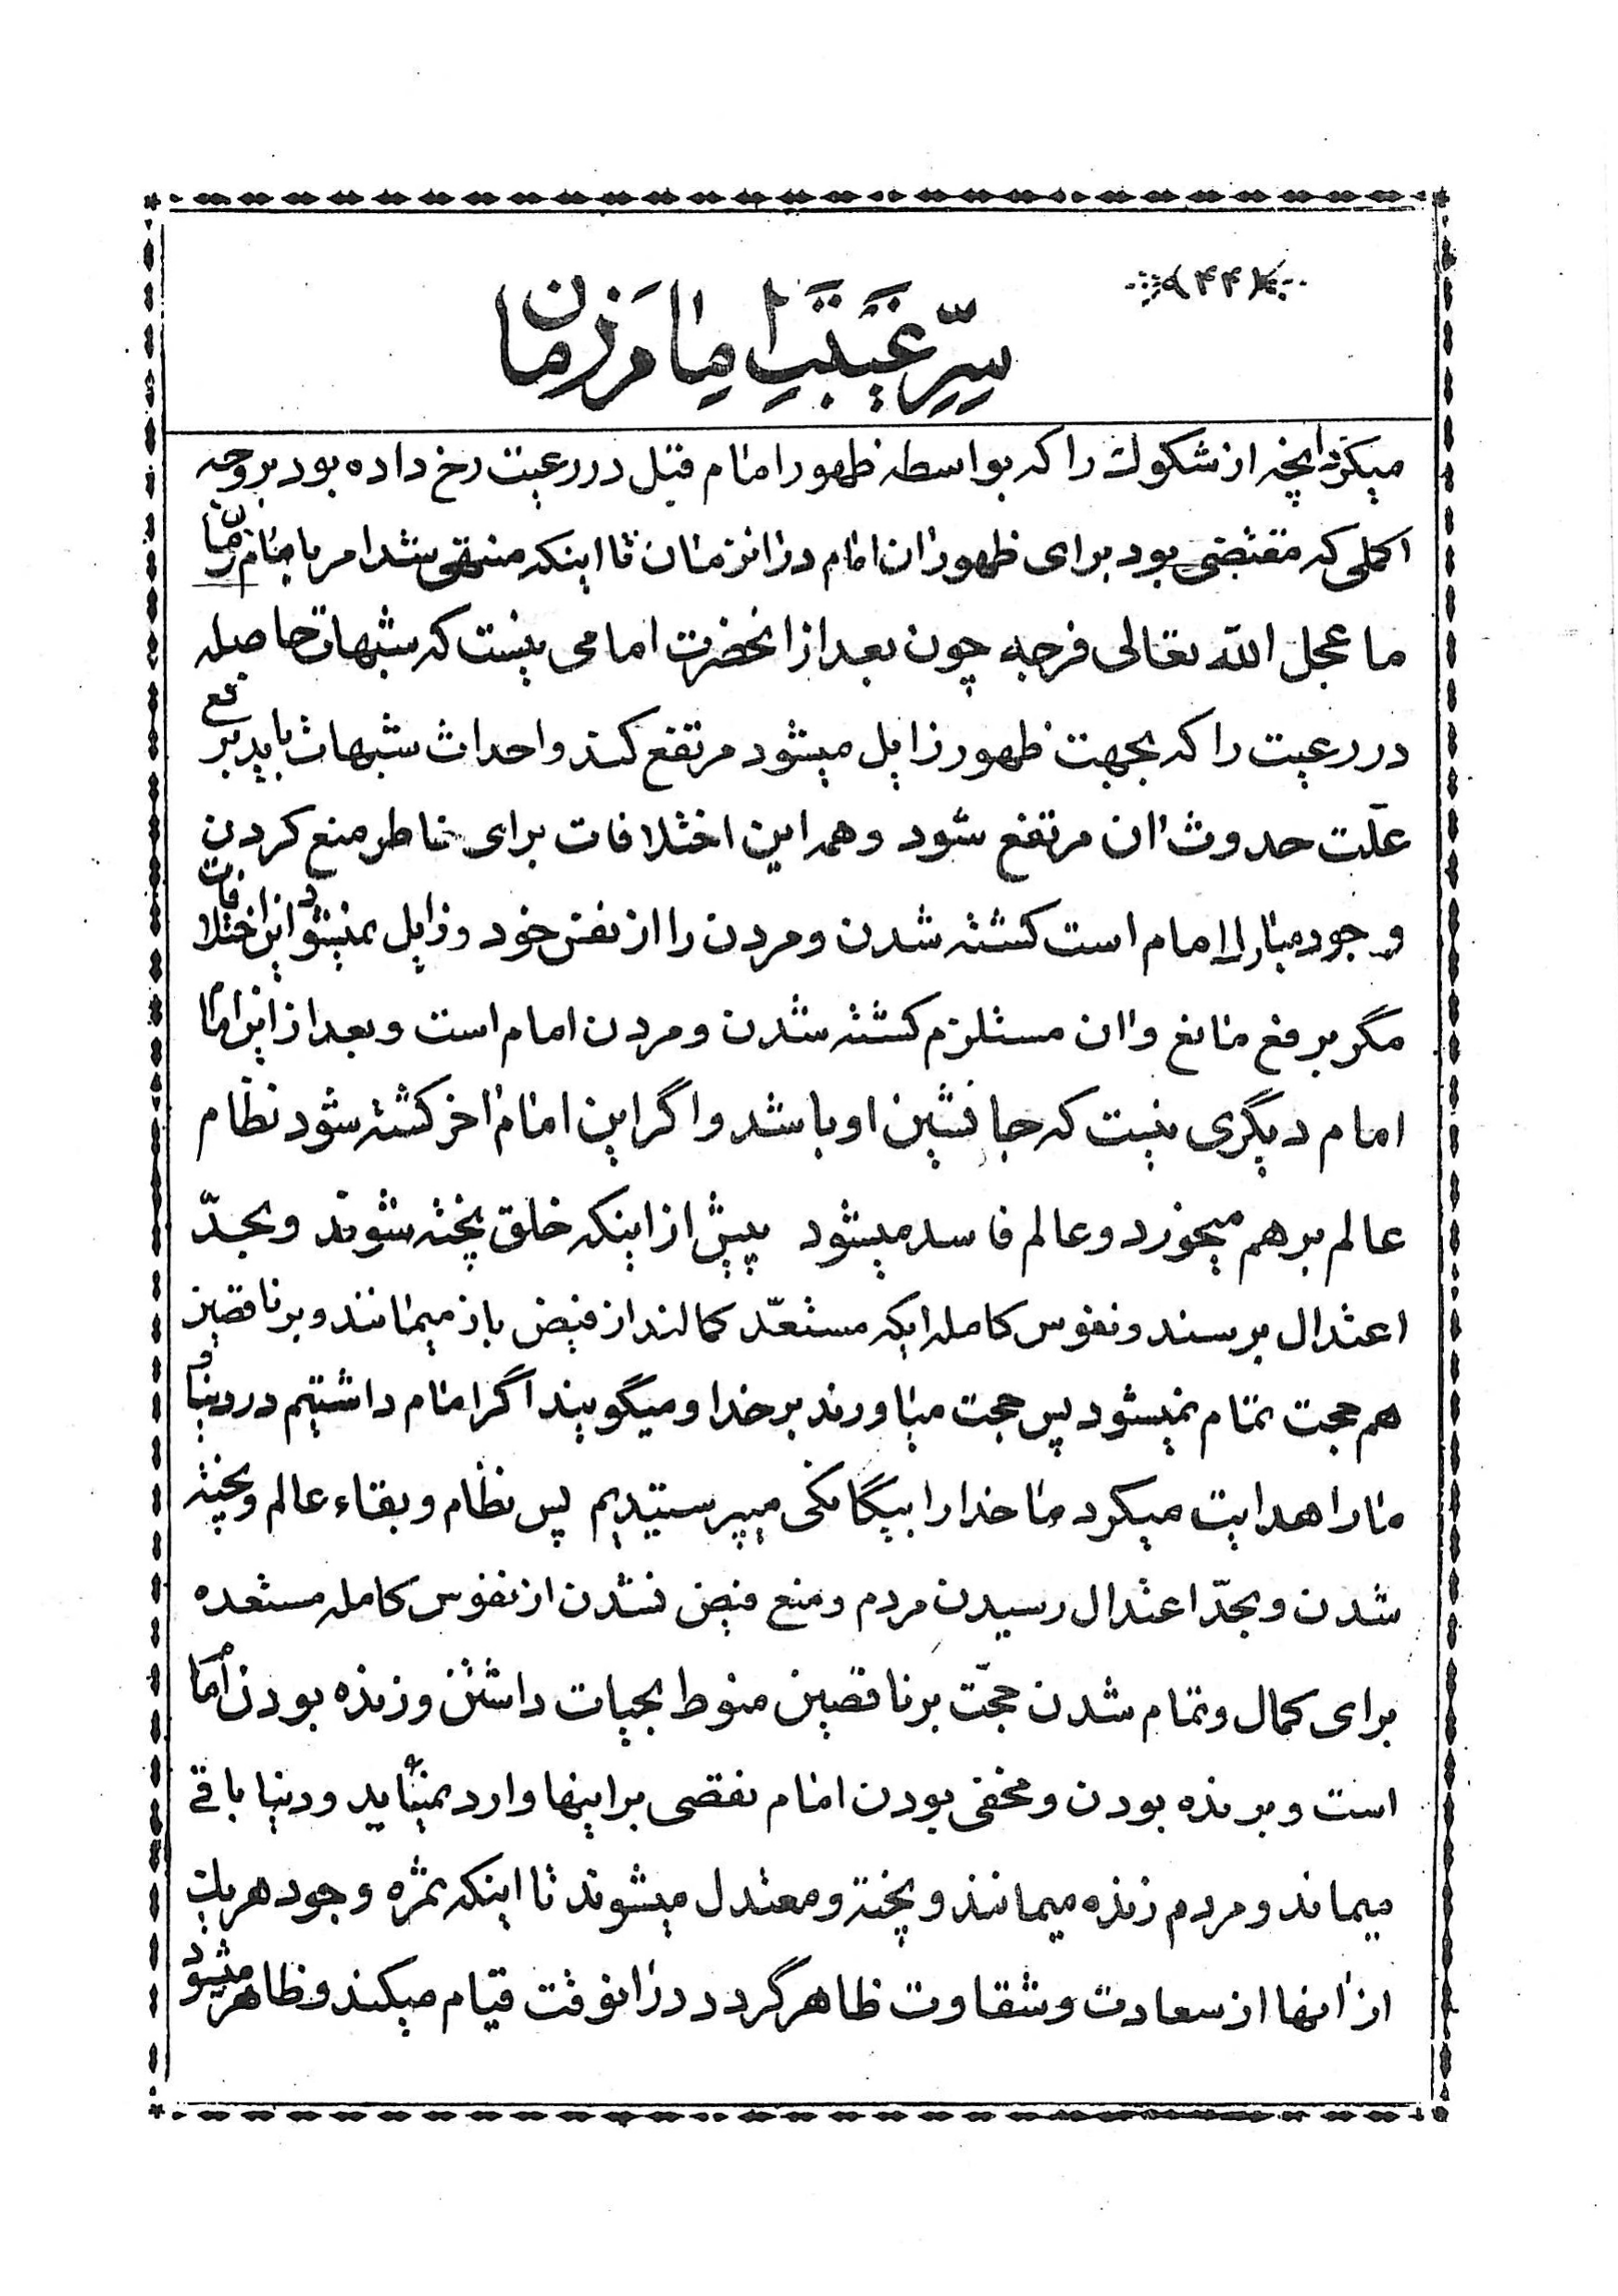 ﴿۴۴﴾
سِرِّ غَیْبَتِ اِمامِ زَمان
میکرد انچه از شکوک را که بواسطه ظهور امام قبل در رعیت رخ داده بود بروجه
اکملی که مقتضی بود برای ظهور ان امام در انزمان تا اینکه منتهی شد امر با مام زمان
ما عجل الله تعالی فرجه چون بعد از انحضرت امامی نیست که شبهات حاصله
در رعیت را که بجهت ظهور زایل میشود مرتفع کند و احداث شبهات باید برفع
علّت حدوث ان مرتفع شود و همه این اختلافات برای خاطر منع کردن
وجود مبارک امام است کشته شدن و مردن را از نفس خود و زایل نمیشود این اختلافات
مگر برفع مانع و ان مستلزم کشته شدن و مردن امام است و بعد از این امام
امام دیگری نیست که جانشین او باشد و اگر این امام اخر کشته شود نظام
عالم برهم میخورد و عالم فاسد میشود پیش از اینکه خلق پخته شوند و بحدّ
اعتدال برسند و نفوس کامله ایکه مستعدّ کمالند از فیض باز میمانند و بر ناقصین
هم حجت تمام نمیشود پس حجت میاورند بر خدا و میگویند اگر امام داشتیم در دنیا و
ما را هدایت میکرد ما خدا را بیگانگی میپرستیدیم پس نظام و بقاء عالم و پخته
شدن و بحدّ اعتدال رسیدن مردم و منع فیض نشدن از نفوس کامله مستعده
برای کمال و تمام شدن حجّت بر ناقصین منوط بحیات داشتن و زنده بودن امام
است و بر نده بودن و مخفی بودن امام نقصی بر اینها وارد نمیاید و دنیا باقی
میماند و مردم زنده میمانند و پخته و معتدل میشوند تا اینکه ثمره وجود هر یک
از انها از سعادت و شقاوت ظاهر گردد در انوقت قیام میکند و ظاهر میشود